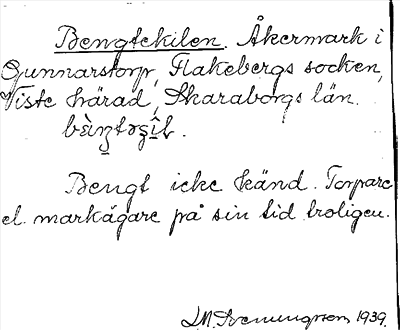 Bengtekilen. Åkermark i
Gunnarstorp, Flakebergs socken,
Viste härad, Skaraborgs län.
Bengt icke känd. Torpare
el. markägare på sin tid troligen.
1939.